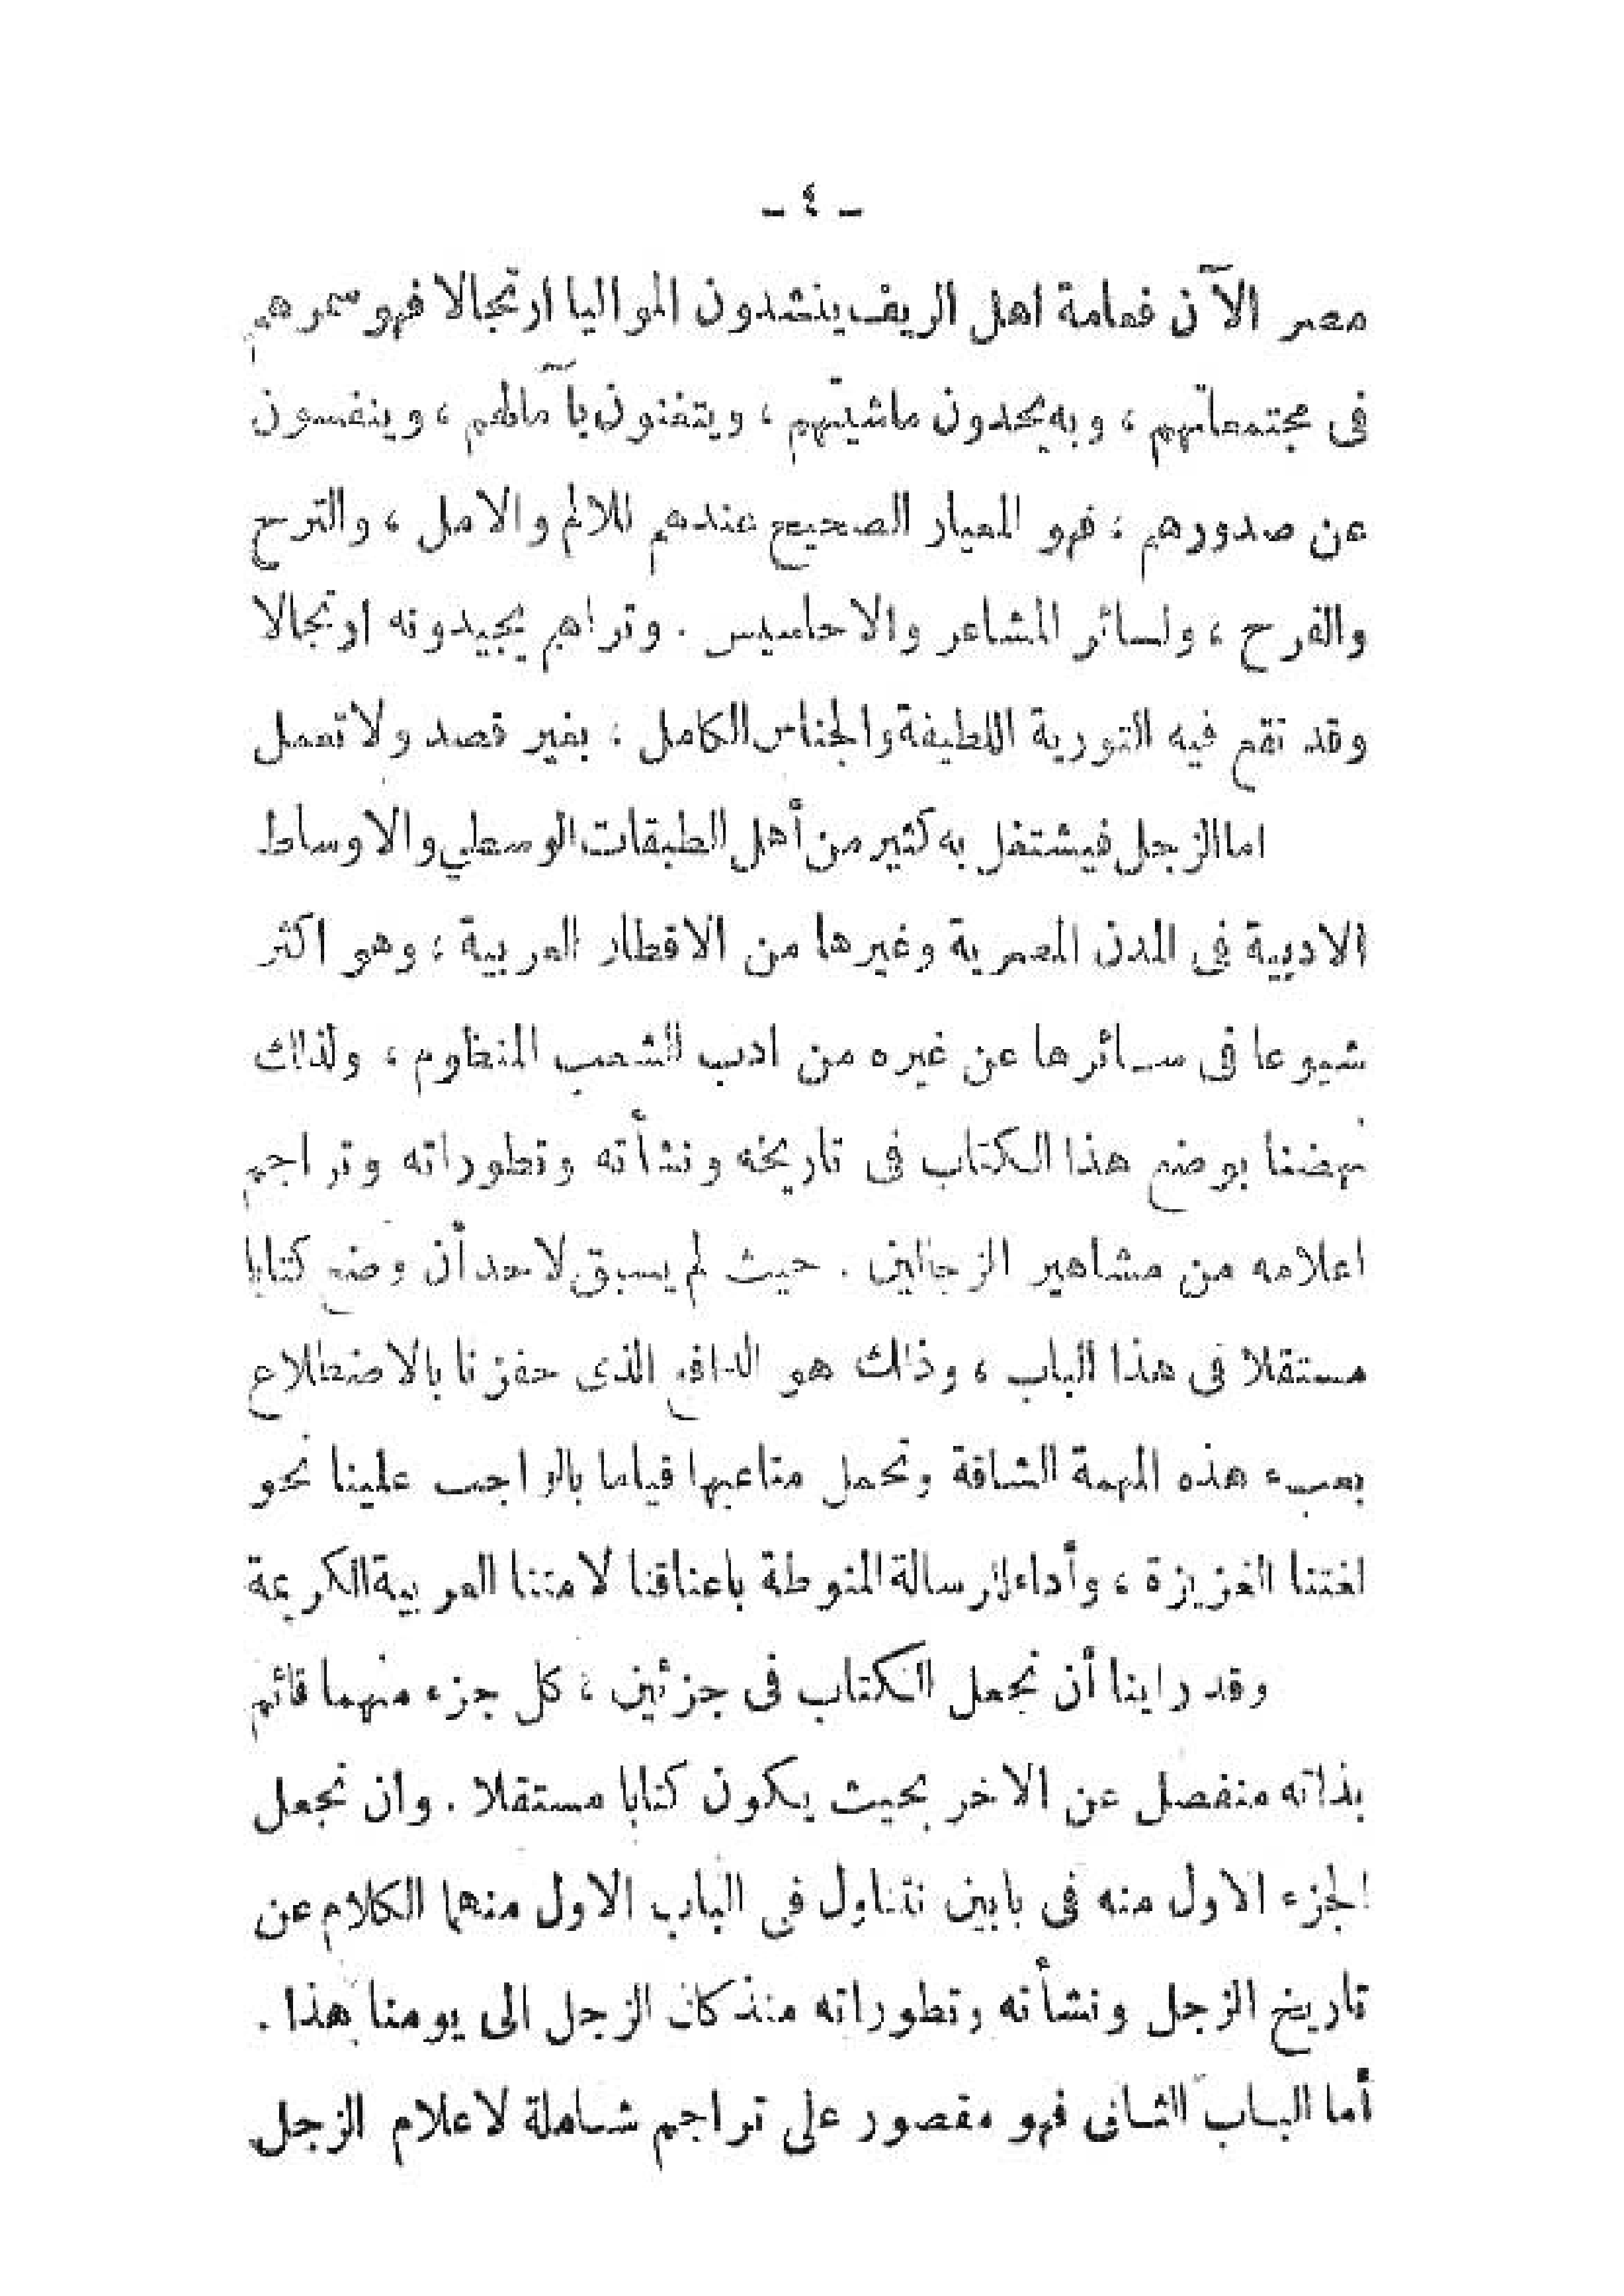 - ٤ -
مصر الآن فعامة اهل الريف ينشدون المواليا ارتجالا فهو سمرهم
فى مجتمعاتهم ، وبه يحدون ماشيتهم ، ويتغنون بآمالهم ، وينفسون
عن صدورهم ، فهو المعيار الصحيح عندهم للالم والامل ، والترح
والفرح ، ولسائر المشاعر والاحاسيس . وتراهم يجيدونه ارتجالا
وقد تقع فيه التورية اللطيفة والجناس الكامل ، بغير قصد ولا تعمل
اما الزجل فيشتغل به كثير من أهل الطبقات الوسطي والاوساط
الادبية فى المدن المصرية وغيرها من الاقطار العربية ، وهو اكثر
شيوعا فى سائرها عن غيره من ادب الشعب المنظوم ، ولذلك
نهضنا بوضع هذا الكتاب فى تاريخه ونشأته وتطوراته وتراجم
اعلامه من مشاهير الزجالين . حيث لم يسبق لاحد أن وضع كتابا
مستقلا فى هذا الباب ، وذلك هو الدافع الذى حفزنا بالاضطلاع
بعبء هذه المهمة الشاقة وتحمل متاعبها قياما بالواجب علينا نحو
لغتنا العزيزة ، وأداء للرسالة المنوطة باعناقنا لامتنا العربية الكريمة
وقد راينا أن نجعل الكتاب فى جزئين ، كل جزء منهما قائم
بذاته منفصل عن الاخر بحيث يكون كتابا مستقلا . وان نجعل
الجزء الاول منه فى بابين نتناول فى الباب الاول منهما الكلام عن
تاريخ الزجل ونشأته وتطوراته منذ كان الزجل الى يومنا هذا .
أما الباب الثانى فهو مقصور على تراجم شاملة لاعلام الزجل